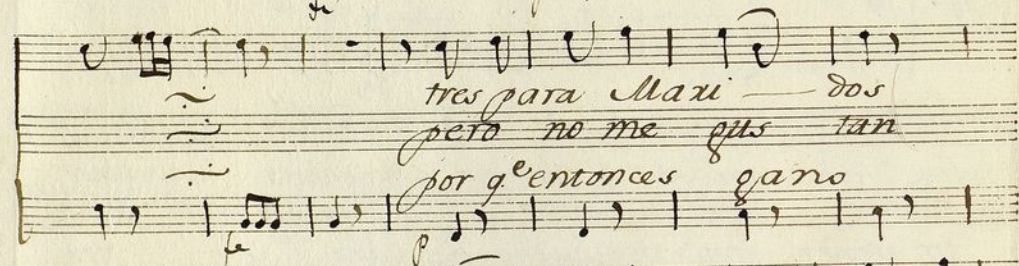 fe
tres para Mari — dos
pero no me gus tan
por q.e entonces gano
fe p